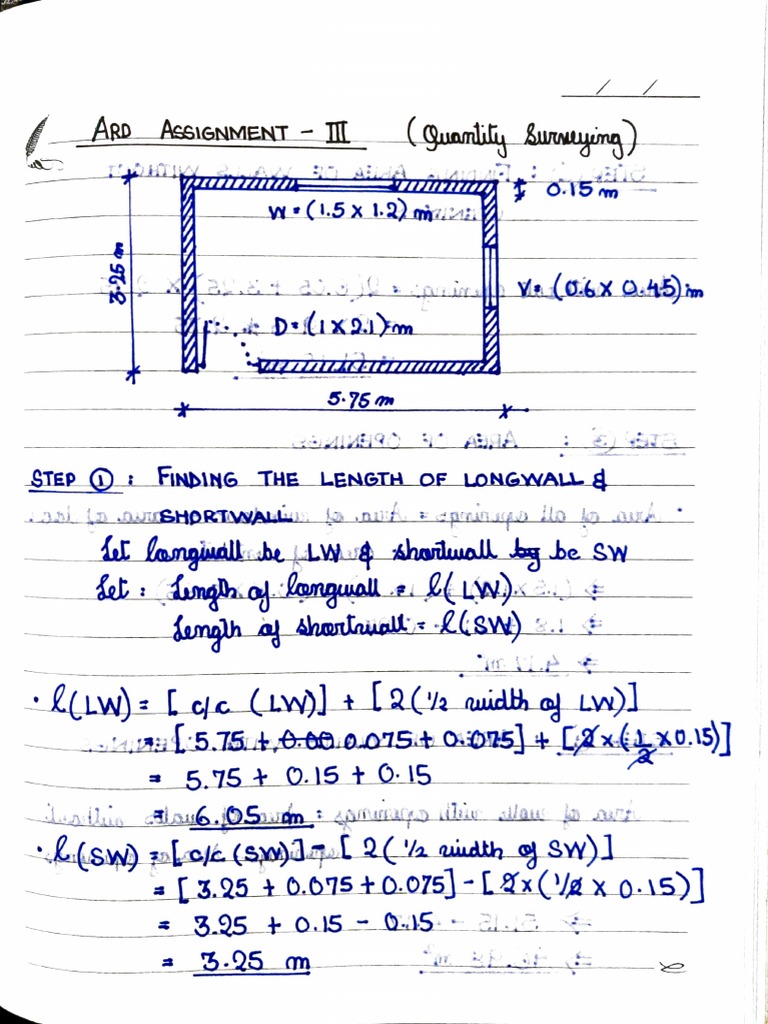 / /
ARD ASSIGNMENT - III (Quantity Surveying)
0.15 m
W = (1.5 x 1.2) m
3.25 m
V = (0.6 x 0.45) m
D = (1 x 2.1) m
5.75 m
STEP ① : FINDING THE LENGTH OF LONGWALL &
SHORTWALL
Let longwall be LW & shortwall by be SW
Let : Length of longwall = l(LW)
Length of shortwall = l(SW)
· l(LW) = [ c/c (LW)] + [ 2(1/2 width of LW)]
= [ 5.75 + 0.00 0.075 + 0.075] + [2 x (1/2 x 0.15)]
= 5.75 + 0.15 + 0.15
= 6.05 m
· l(SW) = [c/c (SW)] - [ 2(1/2 width of SW)]
= [ 3.25 + 0.075 + 0.075] - [2 x (1/2 x 0.15)]
= 3.25 + 0.15 - 0.15
= 3.25 m